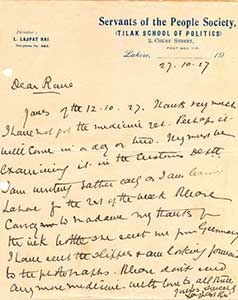 Servants of the People Society.
(TILAK SCHOOL OF POLITICS)
2, COURT STREET,
POST BOX 116.
Director:
L. LAJPAT RAI.
Telephone No.
Lahore, 19
27.10.27
Dear Rana
Yours of the 12.10.27. Thanks very much
I have not got the medicine yet. Perhaps it
will come in a day or two. They must be
examining it in the Customs Deptt
I am writing rather early as I am leaving
Lahore for the rest of the week. Please
Convey to Madame my thanks for
the ink bottle she sent me from Germany
I have sent the slippers & am looking forward
to the photographs. Please don't send
any more medicine. With love to all
Yours sincerely
Lajpat Rai